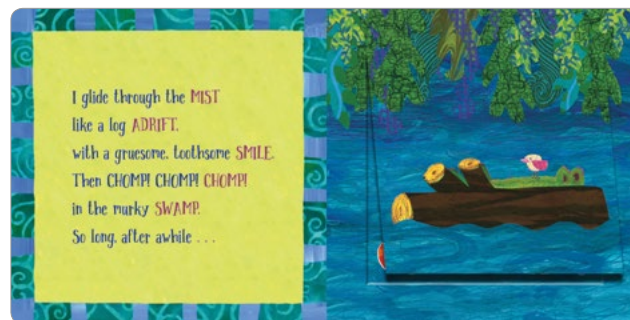 I glide through the MIST
like a log ADRIFT,
with a gruesome, toothsome SMILE.
Then CHOMP! CHOMP! CHOMP!
in the murky SWAMP.
So long, after awhile . . .